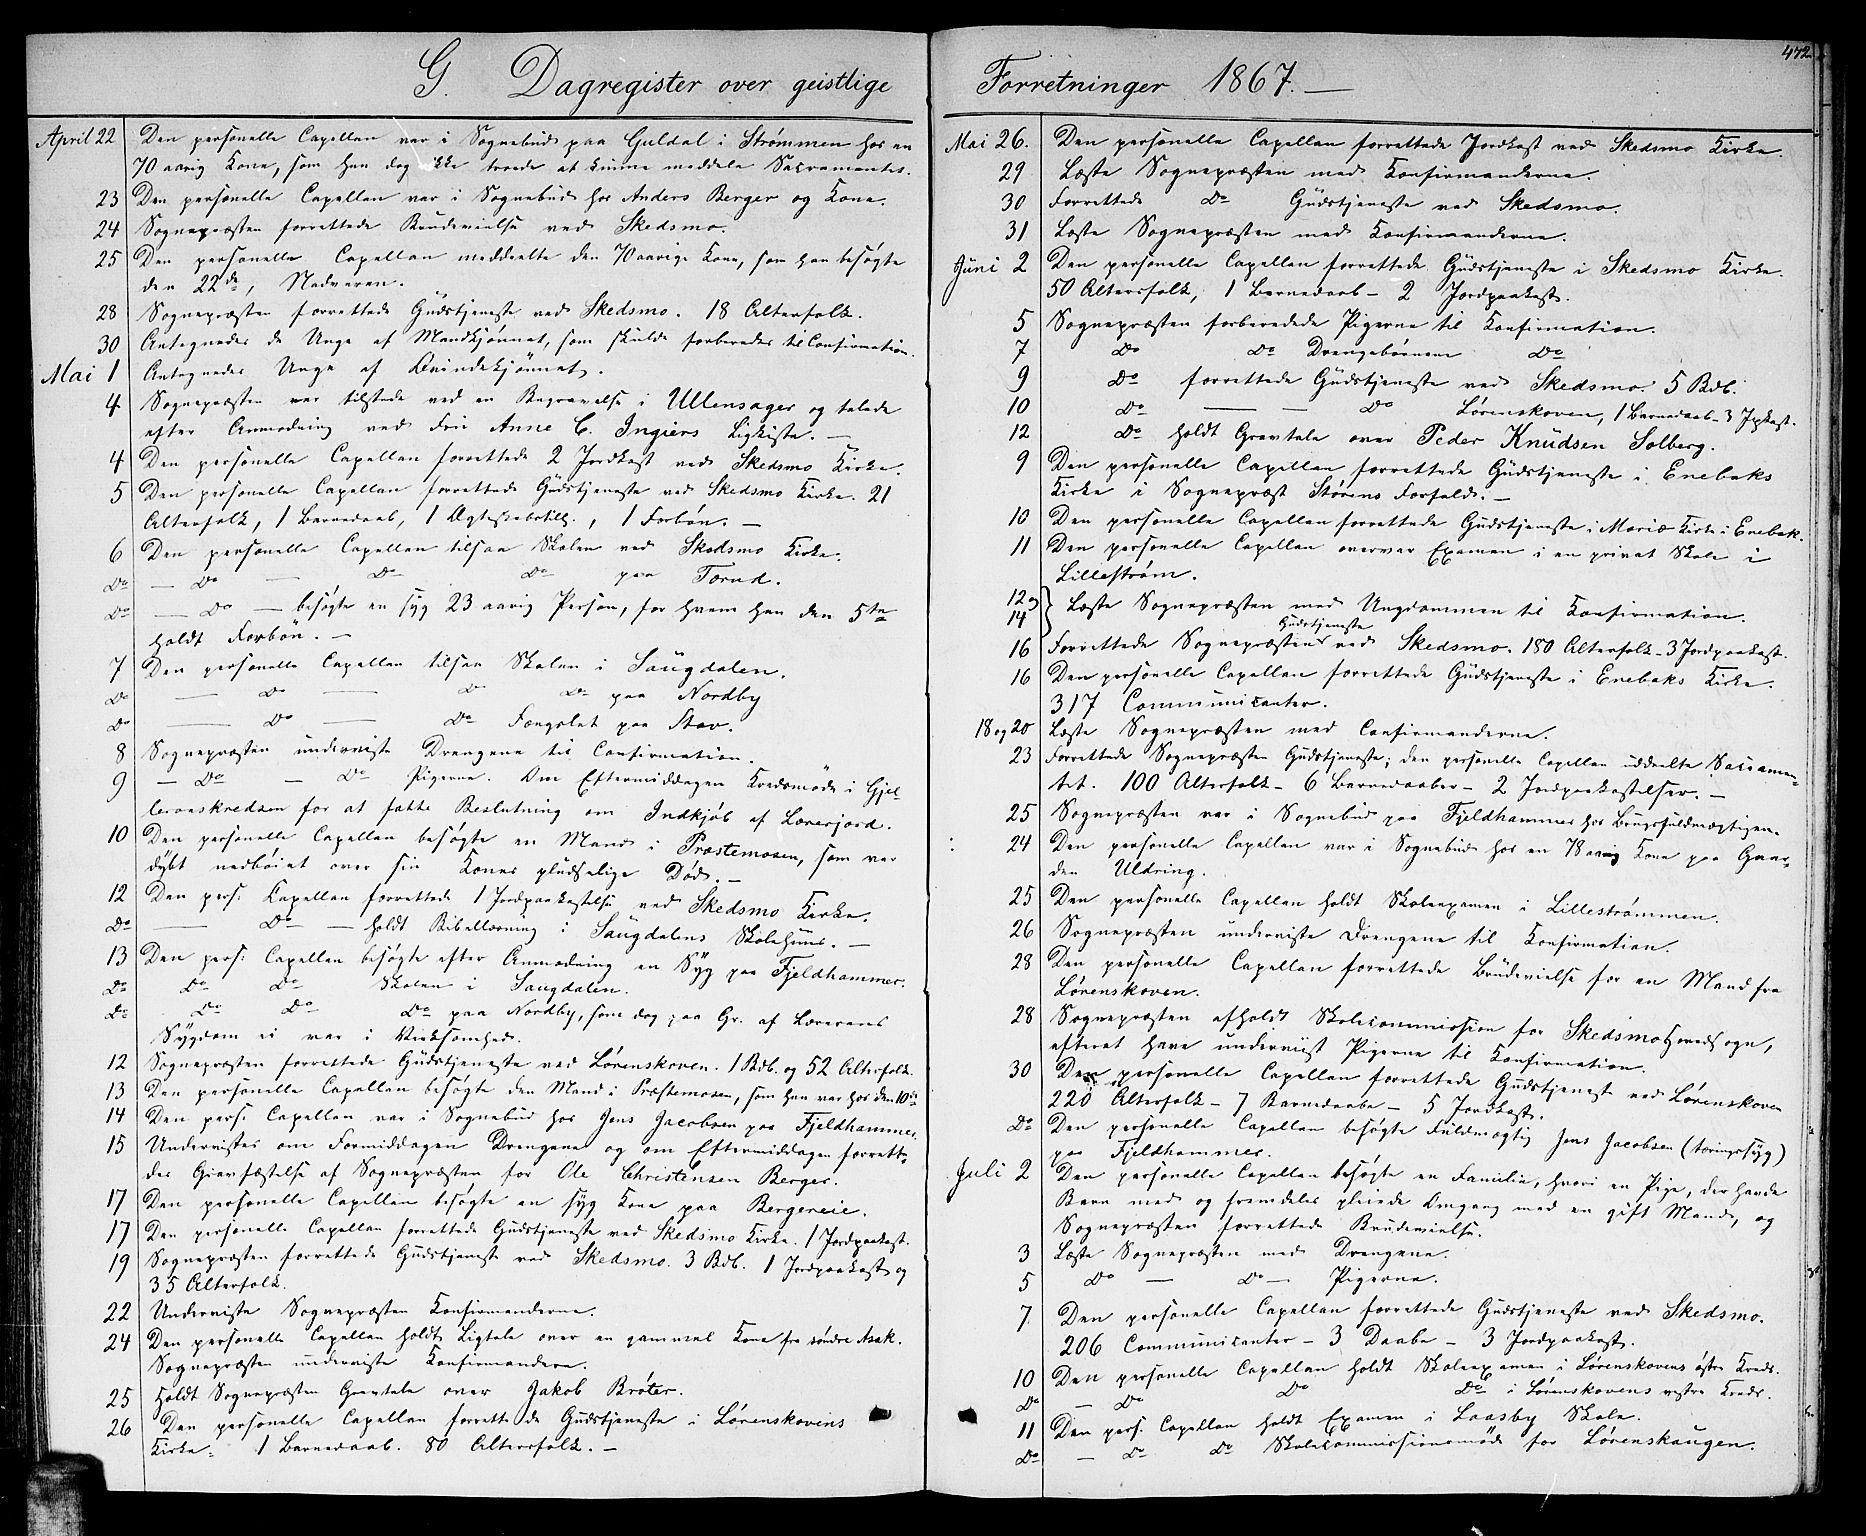 472
G. Dagregister over geistlige
April 22 Den personelle Capellan var i Sognebud paa Guldal i Strømmen hos en
70 aarig Kone, som han dog ikke troede at kunne meddele Sacramentet.
23 Den personelle Capellan var i Sognebud hos Anders Berger og Kone.
24 Sognepræsten forrettede Brudevielse ved Skedsmo.
25 Den personelle Capellan meddeelte den 70 aarige Kone, som han besøgte
den 22de, Nadveren.
28 Sognepræsten forrettede Gudstjeneste ved Skedsmo. 18 Altersfolk.
30 Antegnedes de Unge af Mandkjønnet, som skulde forberedes til Confirmation.
Mai 1 Antegnedes Unge af Qvindekjønnet.
4 Sognepræsten var tilstede ved en Begravelse i Ullensager og talede
efter Anmodning ved Frue Anne C. Ingiers Ligkiste. —
4 Den personelle Capellan forrettede 2 Jordkast ved Skedsmo Kirke.
5 Den personelle Capellan forrettede Gudstjeneste ved Skedsmo Kirke. 21
Altersfolk, 1 Barnedaab, 1 Ægteskabstill., 1 Forbøn. —
6 Den personelle Capellan tilsaa Skolen ved Skedsmo Kirke.
Do — Do — Do Do paa Torud.
Do — Do — besøgte en syg 23 aarig Person, for hvem han den 5te
holdt Forbøn. —
7 Den personelle Capellan tilsaa Skolen i Saugdalen.
Do — Do — Do Do paa Nordby
Do — Do — Do Fængslet paa Stav.
8 Sognepræsten underviste Drengene til Confirmation.
9 — Do — Do Pigerne. Om Eftermiddagen Kredsmøde i Gjel-
leraaskredsen for at fatte Beslutning om Indkjøb af Lærerjord.
10 Den personelle Capellan besøgte en Mand i Præstemosen, som var
dybt nedbøiet over sin Kones pludselige Død. —
12 Den pers. Capellan forrettede 1 Jordpaakastelse ved Skedsmo Kirke.
Do — Do — holdt Bibellæsning i Saugdalens Skolehuus. —
13 Den pers. Capellan besøgte efter Anmodning en Syg paa Fjeldhammer.
Do Do Do Skolen i Saugdalen.
Do Do Do Do paa Nordby, som dog paa Gr. af Lærerens
Sygdom ei var i Virksomhed.
12 Sognepræsten forrettede Gudstjeneste ved Lørenskoven. 1 Bdb. og 52 Altersfolk.
13 Den personelle Capellan besøgte den Mand i Præstemosen, som han var hos den 10de
14 Den pers. Capellan var i Sognebud hos Jens Jacobsen paa Fjeldhammer.
15 Undervistes om Formiddagen Drengene og om Eftermiddagen forrette-
des Gravfæstelse af Sognepræsten for Ole Christensen Berger.
17 Den personelle Capellan besøgte en syg Kone paa Bergereie.
17 Den personelle Capellan forrettede Gudstjeneste ved Skedsmo Kirke. 1 Jordpaakast.
19 Sognepræsten forrettede Gudstjenest ved Skedsmo. 3 Bdb. 1 Jordpaakast og
35 Altersfolk.
22 Underviste Sognepræsten Konfirmanderne.
24 Den personelle Capellan holdt Ligtale over en gammel Kone fra søndre Asak.
Sognepræsten underviste Konfirmandere.
25 Holdt Sognepræsten Gravtale over Jakob Brøter.
26 Den personelle Capellan forrettede Gudstjeneste i Lørenskovens
Kirke. 1 Barnedaab. 80 Altersfolk. —
Forretninger 1867. —
Mai 26. Den personelle Capellan forrettede Jordkast ved Skedsmo Kirke.
29 Læste Sognepræsten med Konfirmanderne.
30 Forrettede Do Gudstjeneste ved Skedsmo.
31 Læste Sognepræsten med Konfirmanderne.
Juni 2 Den personelle Capellan forrettede Gudstjeneste i Skedsmo Kirke.
50 Altersfolk, 1 Barnedaab – 2 Jordpaakast.
5 Sognepræsten forberedede Pigerne til Konfirmation.
7 Do Do Drengebørnene Do
9 Do forrettede Gudstjeneste ved Skedsmo. 5 Bdb.
10 Do — — Do Lørenskoven, 1 Barnedaab – 3 Jpkast.
12 Do holdt Gravtale over Peder Knudsen Solberg.
9 Den personelle Capellan forrettede Gudstjeneste i Enebaks
Kirke i Sognepræst Størens Forfald. —
10 Den personelle Capellan forrettede Gudstjeneste i Mariæ Kirke i Enebak.
11 Den personelle Capellan overvar Examen i en privat Skole i
Lillestrøm.
12 og
14 Læste Sognepræsten med Ungdommen til Konfirmation.
Gudstjeneste
16 Forrettede Sognepræsten ved Skedsmo. 180 Altersfolk – 3 Jordpaakast.
16 Den personelle Capellan forrettede Gudstjeneste i Enebaks Kirke.
317 Communicanter.
18 og 20 Læste Sognepræsten med Confirmanderne.
23 Forrettede Sognepræsten Gudstjeneste; den personelle Capellan uddeelte Sacramen-
tet. 100 Altersfolk – 6 Barnedaaber – 2 Jordpaakastelser. —
25 Sognepræsten var i Sognebud paa Fjeldhammer hos Brugsfuldmægtigen.
24 Den personelle Capellan var i Sognebud hos en 78 aarig Kone paa Gaar-
den Uldring.
25 Den personelle Capellan holdt Skoleexamen i Lillestrømmen.
26 Sognepræsten underviste Drengene til Konfirmation.
28 Den personelle Capellan forrettede Brudevielse for en Mand fra
Lørenskoven.
28 Sognepræsten afholdt Skolecommission for Skedsmo Hovedsogn,
efterat have underviist Pigerne til Konfirmation.
30 Den personelle Capellan forrettede Gudstjenest ved Lørenskoven
220 Altersfolk – 7 Barnedaabe – 5 Jordkast.
Do Den personelle Capellan besøgte Fuldmægtig Jens Jacobsen (tæringssyg)
paa Fjeldhammer.
Juli 2 Den personelle Capellan besøgte en Familie, hvori en Pige, der havde
Barn med og fremdeles pleiede Omgang med en gift Mand, og
Sognepræsten forrettede Brudevielse.
3 Læste Sognepræsten med Drengene.
5 Do — Do — Pigerne.
7. Den personelle Capellan forrettede Gudstjeneste ved Skedsmo.
206 Communicanter – 3 Daabe – 3 Jordpaakast.
10 Den personelle Capellan holdt Skoleexamen i Lørenskovens østre Kreds.
Do — Do Do Do i Lørenskovens vestre Kreds.
11 Den pers. Capellan holdt Examen i Laasby Skole.
Do — Do Do Skolecommissionsmøde for Lørenskaugen.